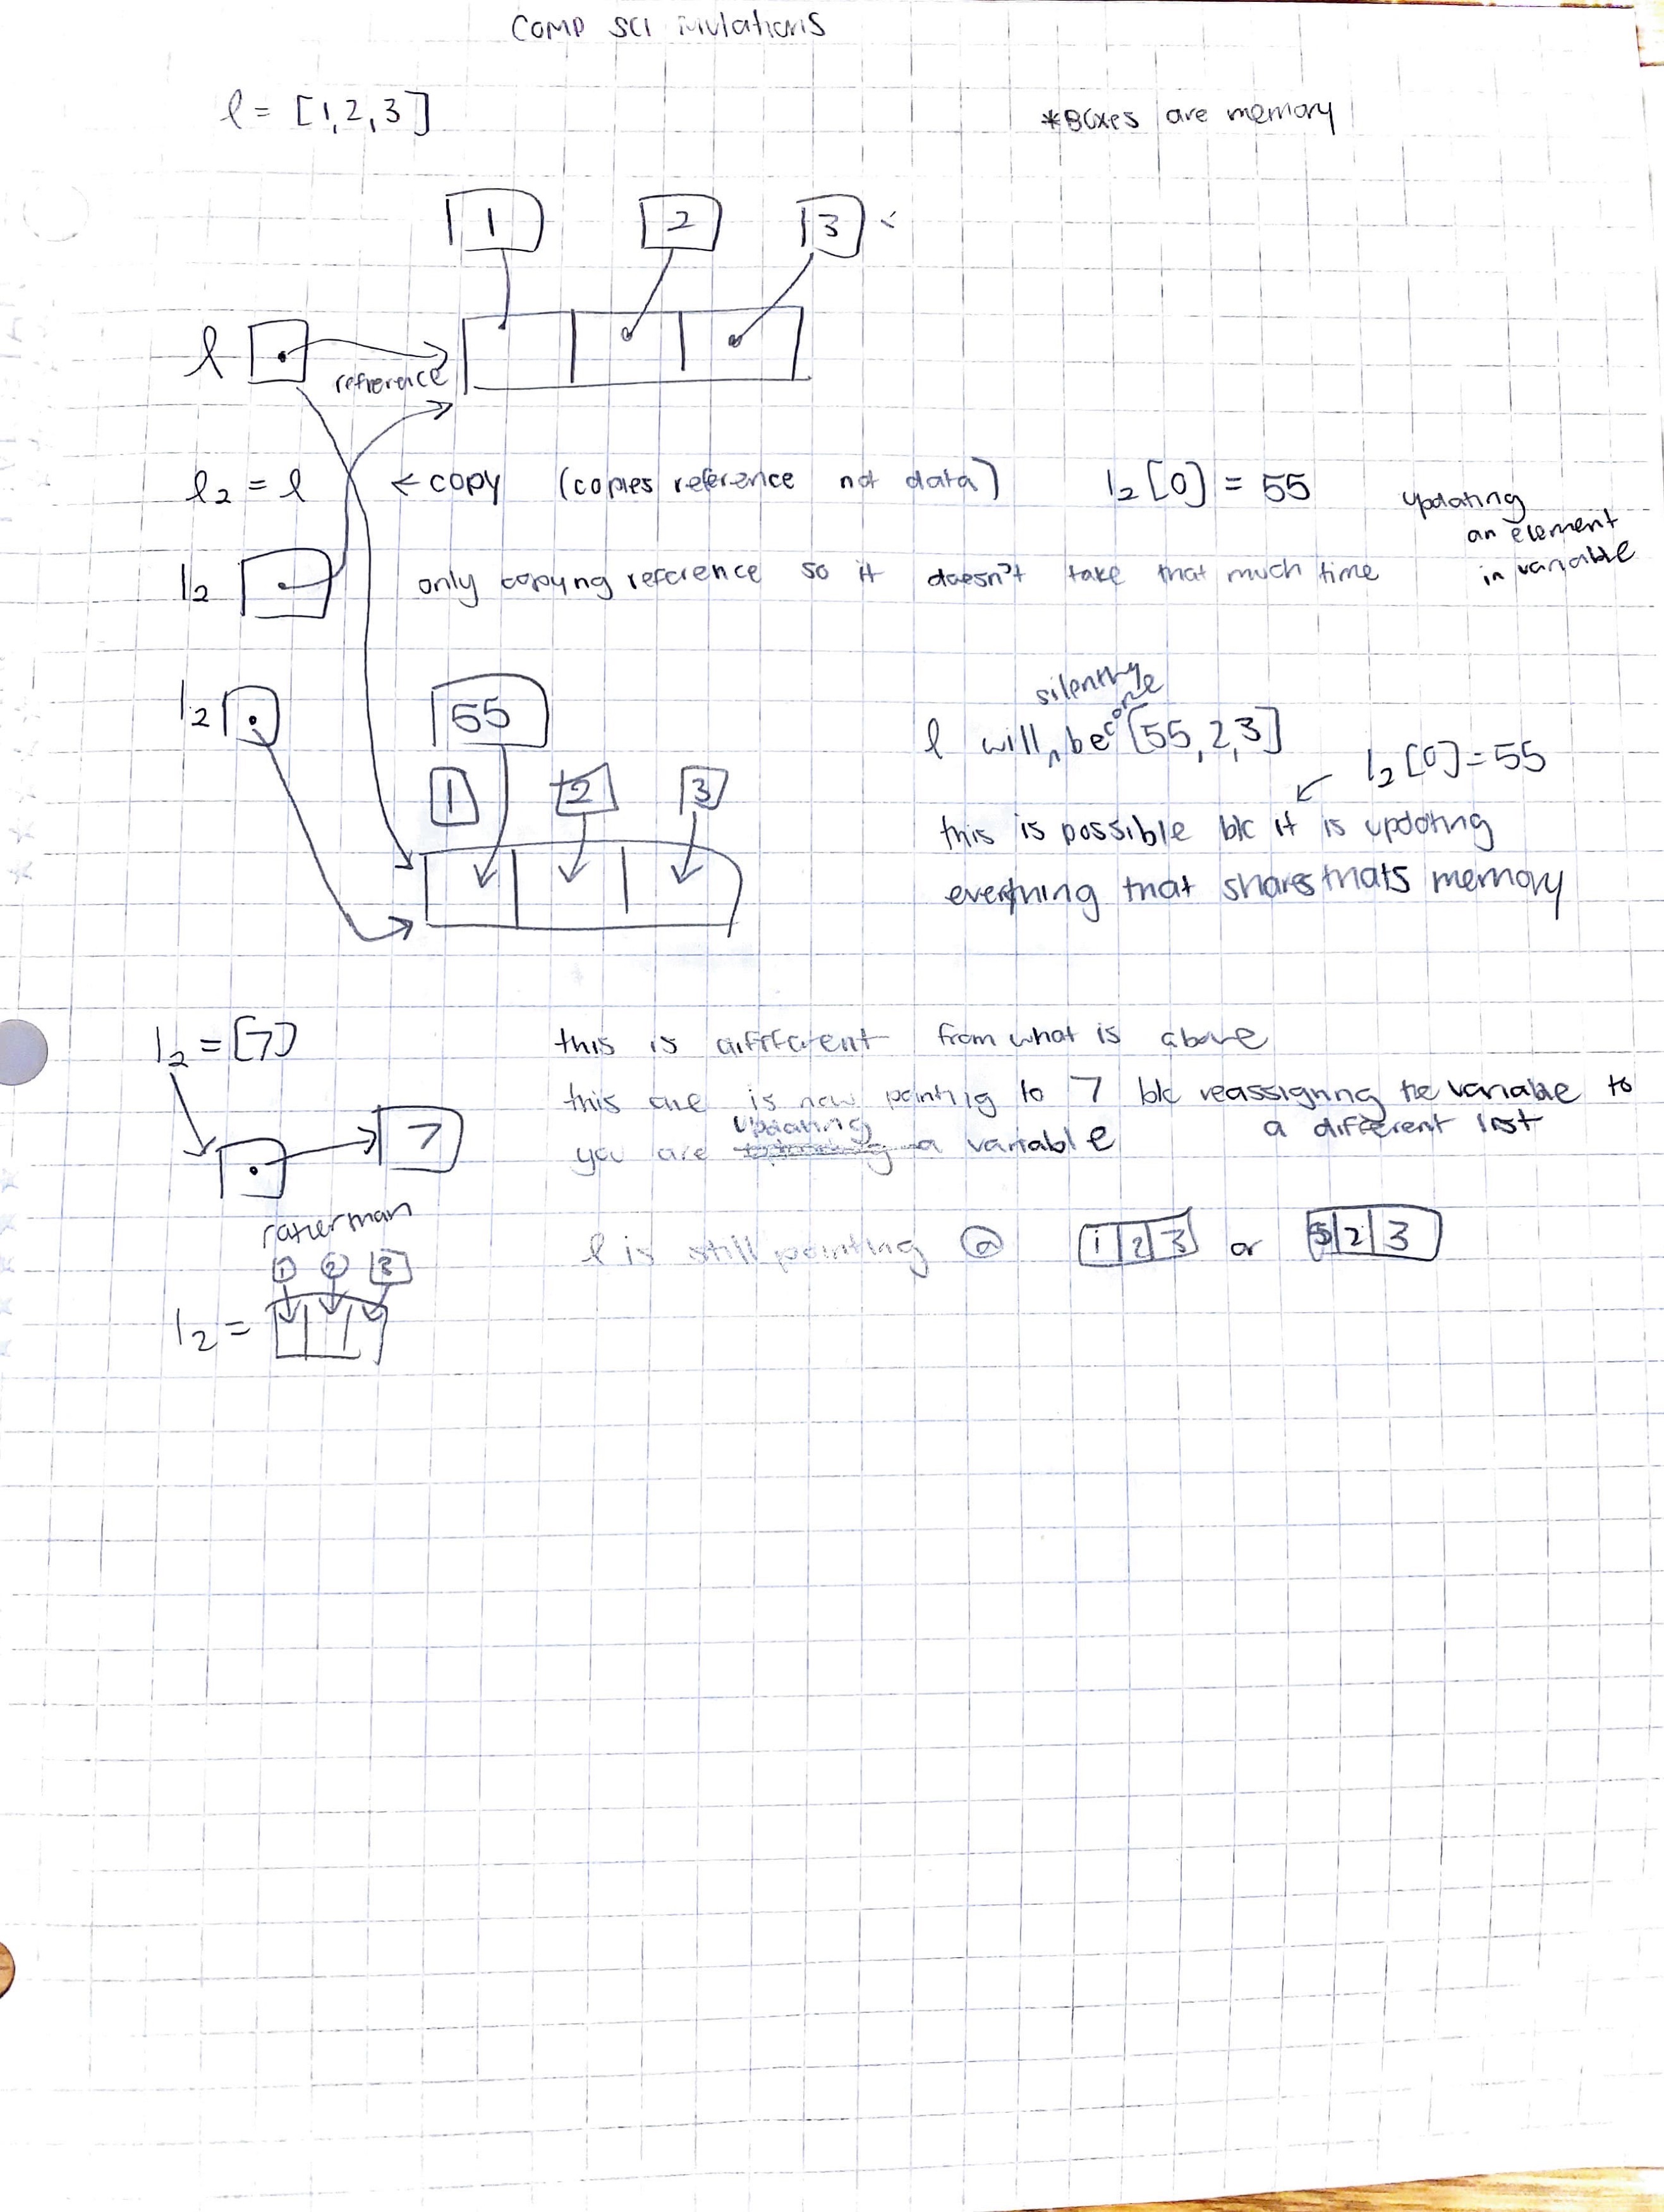 Comp sci Mutations
l = [1,2,3]
*Boxes are memory
1 2 3
l
reference
l2 = l ← copy (copies reference not data) l2[0] = 55
updating
an element
in variable
l2 only copying reference so it doesn't take that much time
l2
55
1 2 3
silently
l will ^ become [55,2,3]
l2[0]=55
this is possible b/c it is updating
everything that shares thats memory
l2 = [7] this is different from what is above
this one is now pointing to 7 b/c reassigning the variable to
a different list
updating
you are a variable
7
rather than
1 2 3
l2 =
l is still pointing @ 1 2 3 or 2 3